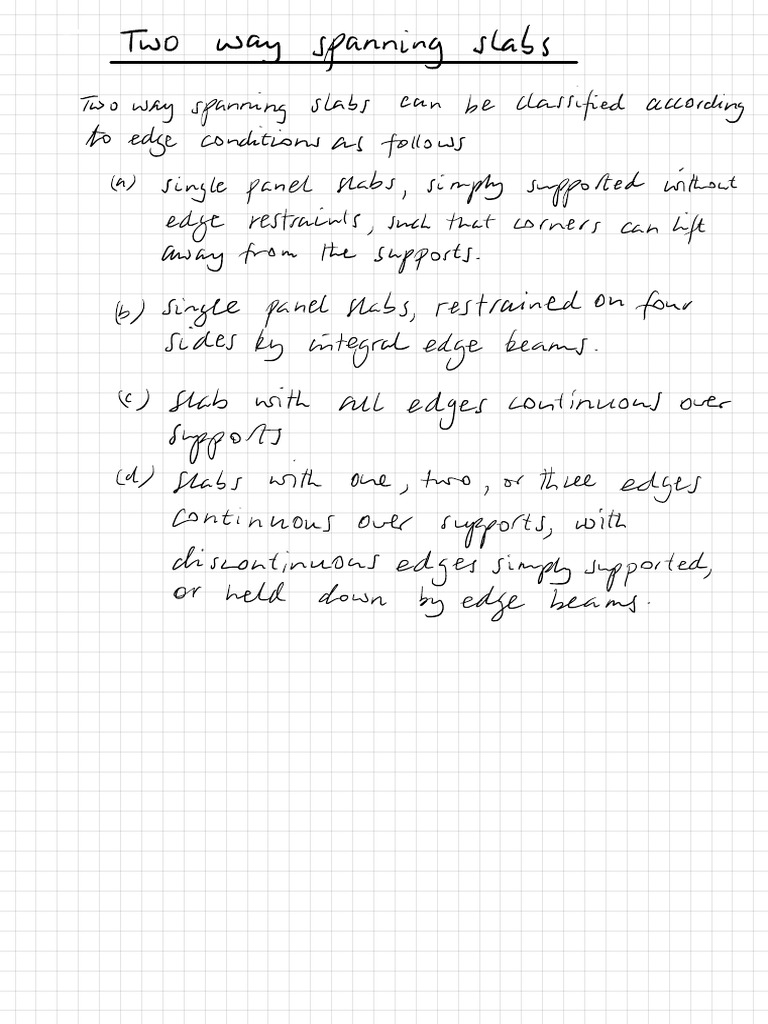 Two way spanning slabs
Two way spanning slabs can be classified according
to edge conditions as follows
(a) single panel slabs, simply supported without
edge restraints, such that corners can lift
away from the supports.
(b) single panel slabs, restrained on four
sides by integral edge beams.
(c) slab with all edges continuous over
supports
(d) slabs with one, two, or three edges
continuous over supports, with
discontinuous edges simply supported,
or held down by edge beams.